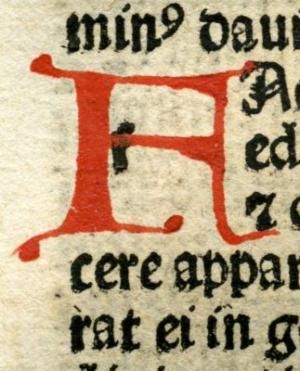 minꝰ daui
FAc
ed
⁊
cere appar
rat ei in g